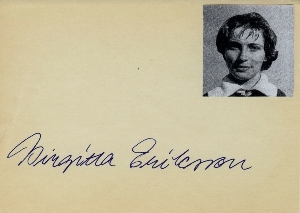 Birgitta Eriksson